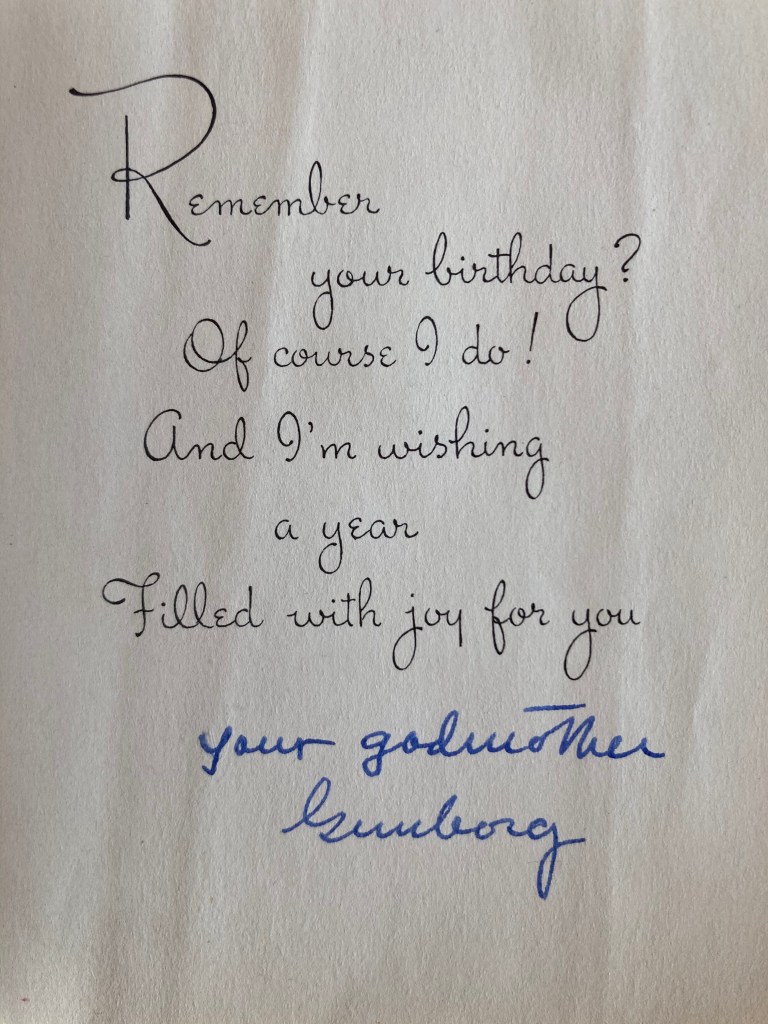 Remember
your birthday?
Of course I do!
And I'm wishing
a year
Filled with joy for you
your godmother
Gunborg